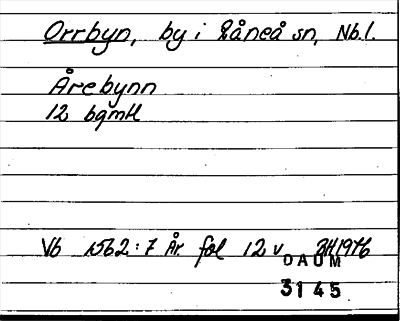 Orrbyn, by i Råneå sn, Nb.l.
Årebynn
12 bgmtl
Vb 1562:7 År fol 12 v 1976
DAUM
3145